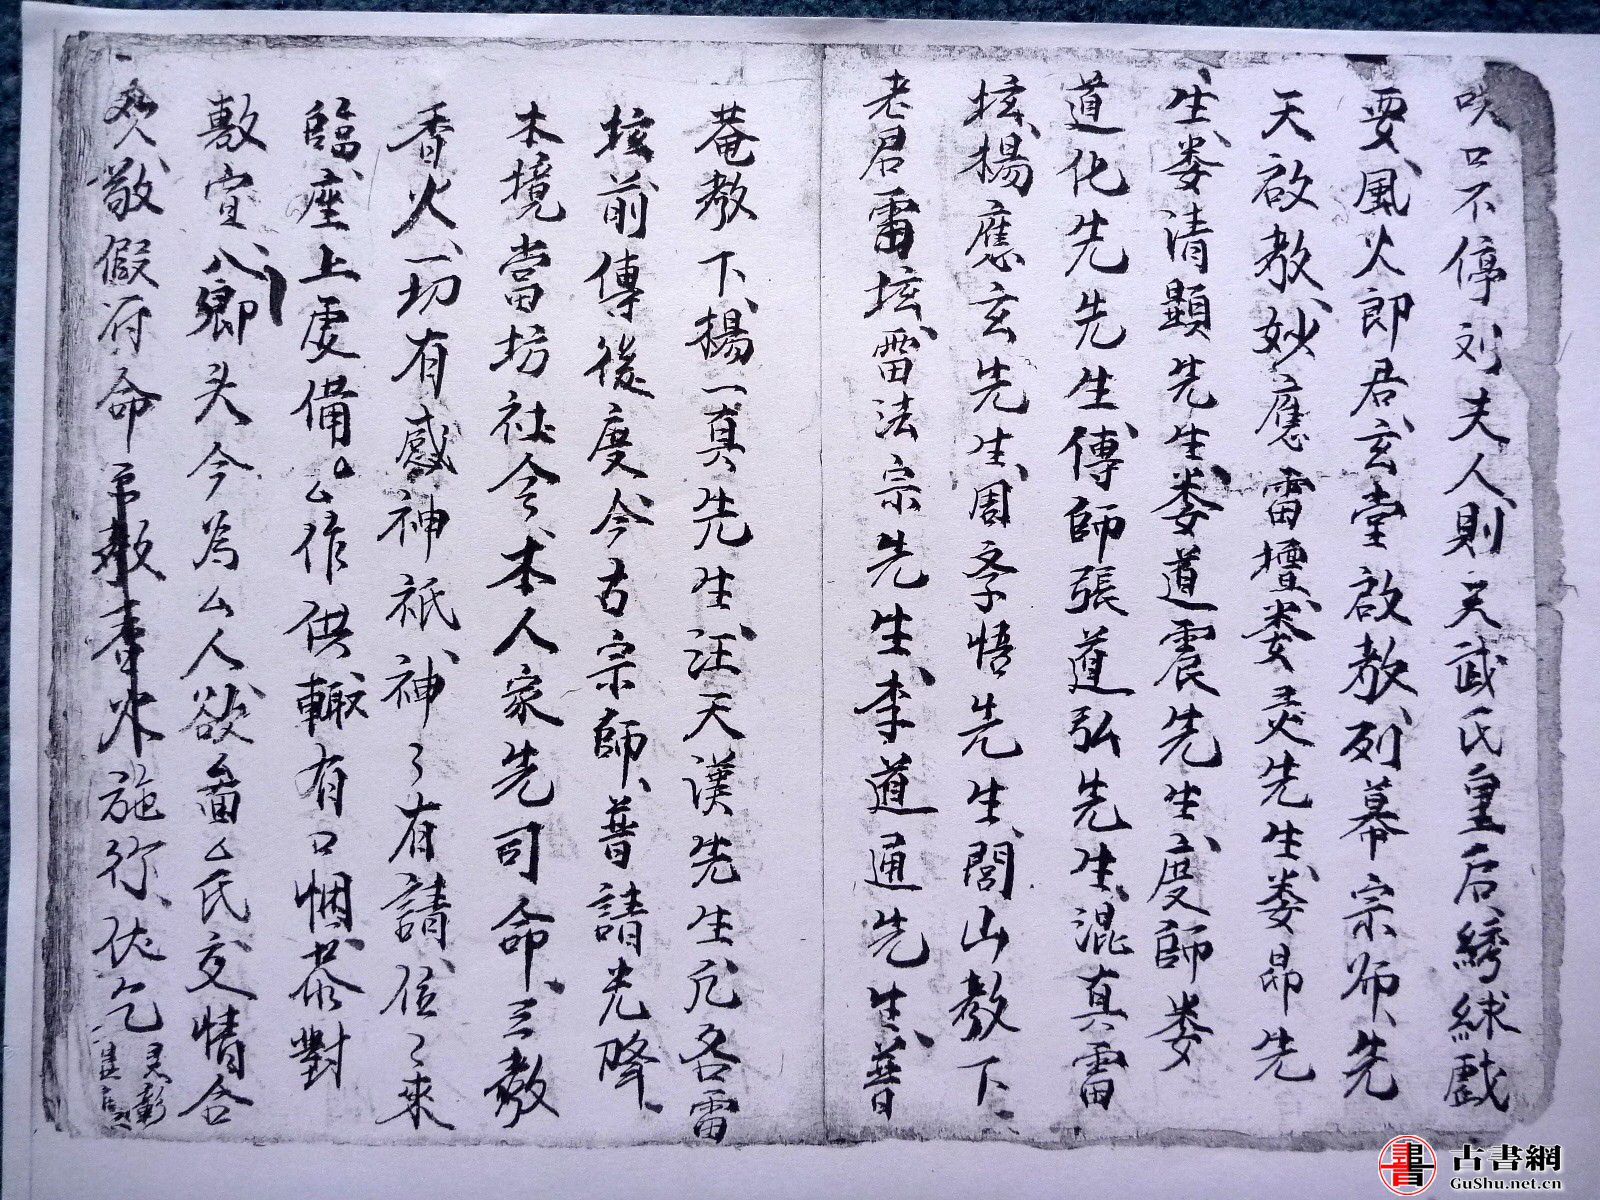 口不停刘夫人則天武氏皇后綉綵戲
耍風火郎君玄堂啟教列幕宗师先
天啟教妙應雷壇娄灵先生娄昂先
生娄清顯先生娄道震先生度師娄
道化先先生傅師張道弘先生混真雷
坛楊應玄先生周孛悟先生閭山教下
老君雷坛雷法宗先生李道通先生普
菴教下楊一真先生汪天漢先生凢各雷
坛前傳後度今古宗師普請光降
本境當坊社令本人家先司命三教
香火一切有感神祇神々有請位々來
臨座上虔備厶厶作供輙有口悃恭對
敷宣八卿头今為厶人欲酱厶氏交情合
敬假府命 教香火施行伏乞
古書網
GuShu.net.cn